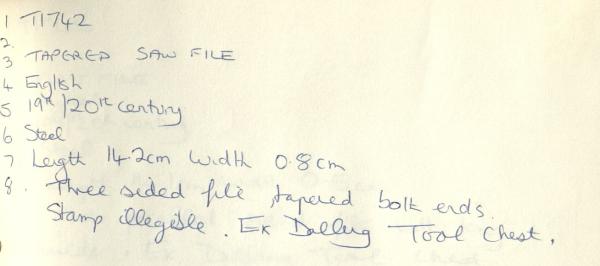 1 T1742
2.
3 TAPERED SAW FILE
4 English
5 19th/20th century
6 Steel
7 Length 14.2cm width 0.8cm
8. Three sided file, tapered both ends.
Stamp illegible. Ex Tool Chest.